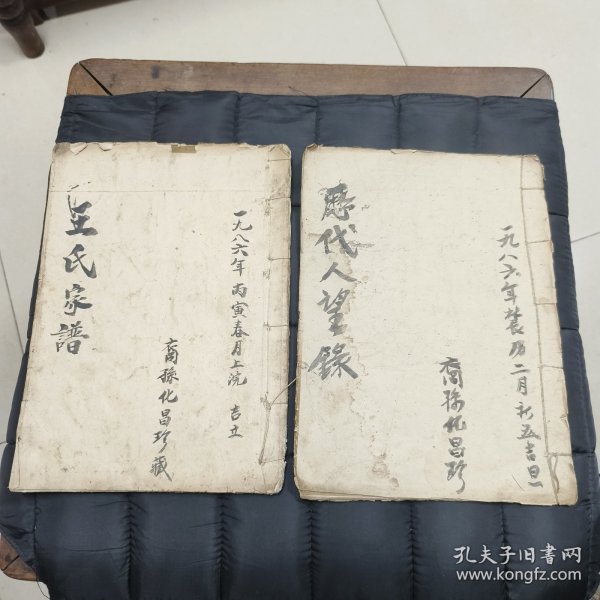 王氏家譜
一九八六年丙寅春月上浣 吉立
裔孫化昌珍藏
歷代人望錄
一九八六年農历二月初五吉旦
裔孫化昌珍
孔夫子旧书网
www.kongfz.com